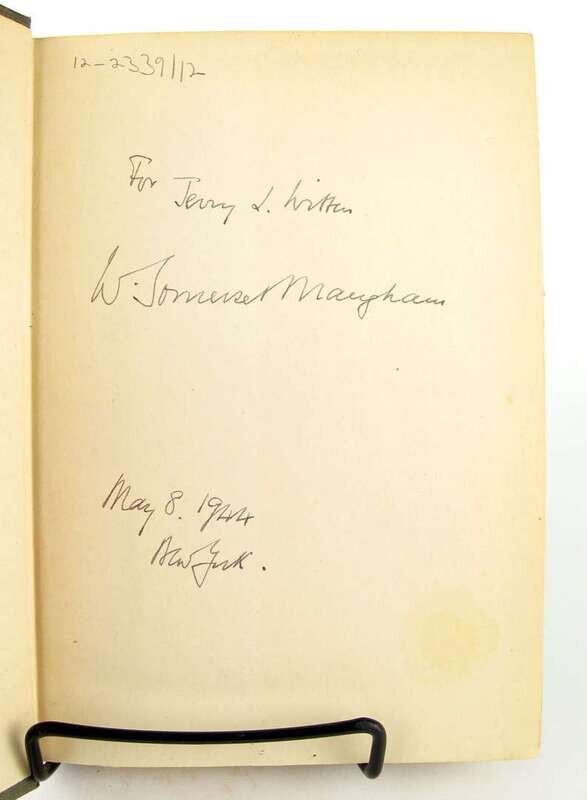 12-2339/12
For
Jerry L. Witten
W. Somerset Maugham
May 8. 1944
New York.